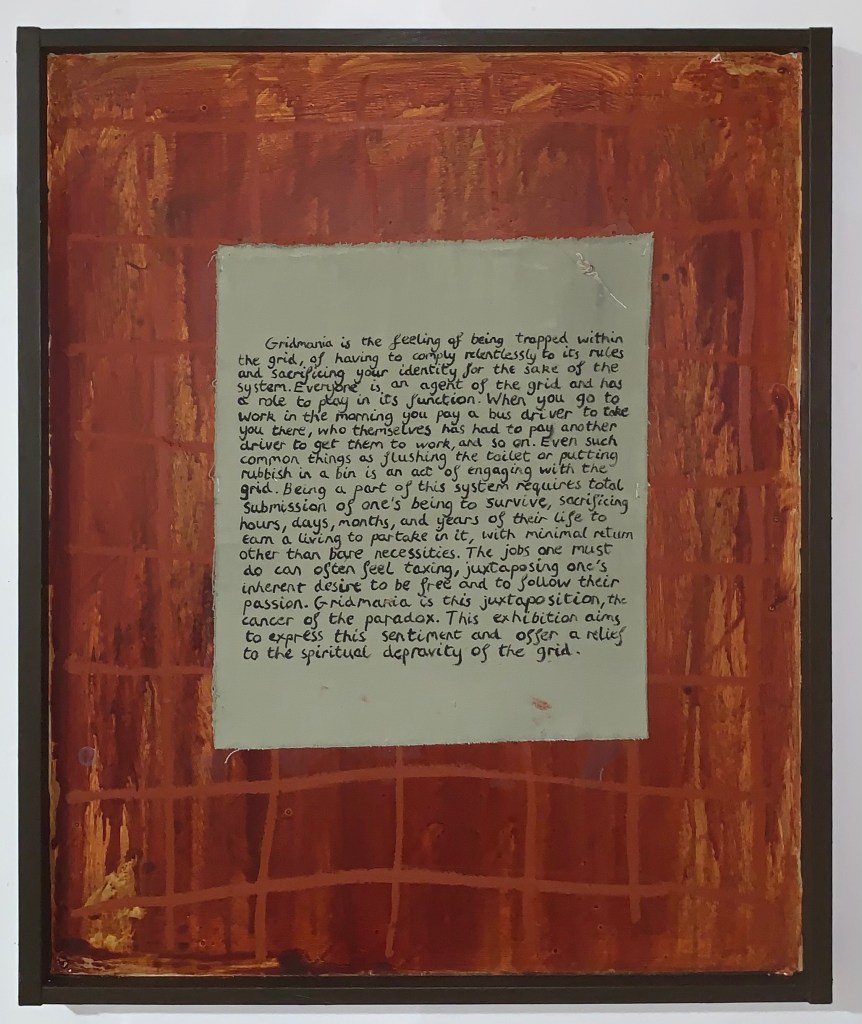 Gridmania is the feeling of being trapped within
the grid, of having to comply relentlessly to its rules
and sacrificing your identity for the sake of the
system. Everyone is an agent of the grid and has
a role to play in its function. When you go to
work in the morning you pay a bus driver to take
you there, who themselves has had to pay another
driver to get them to work, and so on. Even such
common things as flushing the toilet or putting
rubbish in a bin is an act of engaging with the
grid. Being a part of this system requires total
submission of one's being to survive, sacrificing
hours, days, months, and years of their life to
earn a living to partake in it, with minimal return
other than bare necessities. The jobs one must
do can often feel taxing, juxtaposing one's
inherent desire to be free and to follow their
passion. Gridmania is this juxtaposition, the
cancer of the paradox. This exhibition aims
to express this sentiment and offer a relief
to the spiritual depravity of the grid.